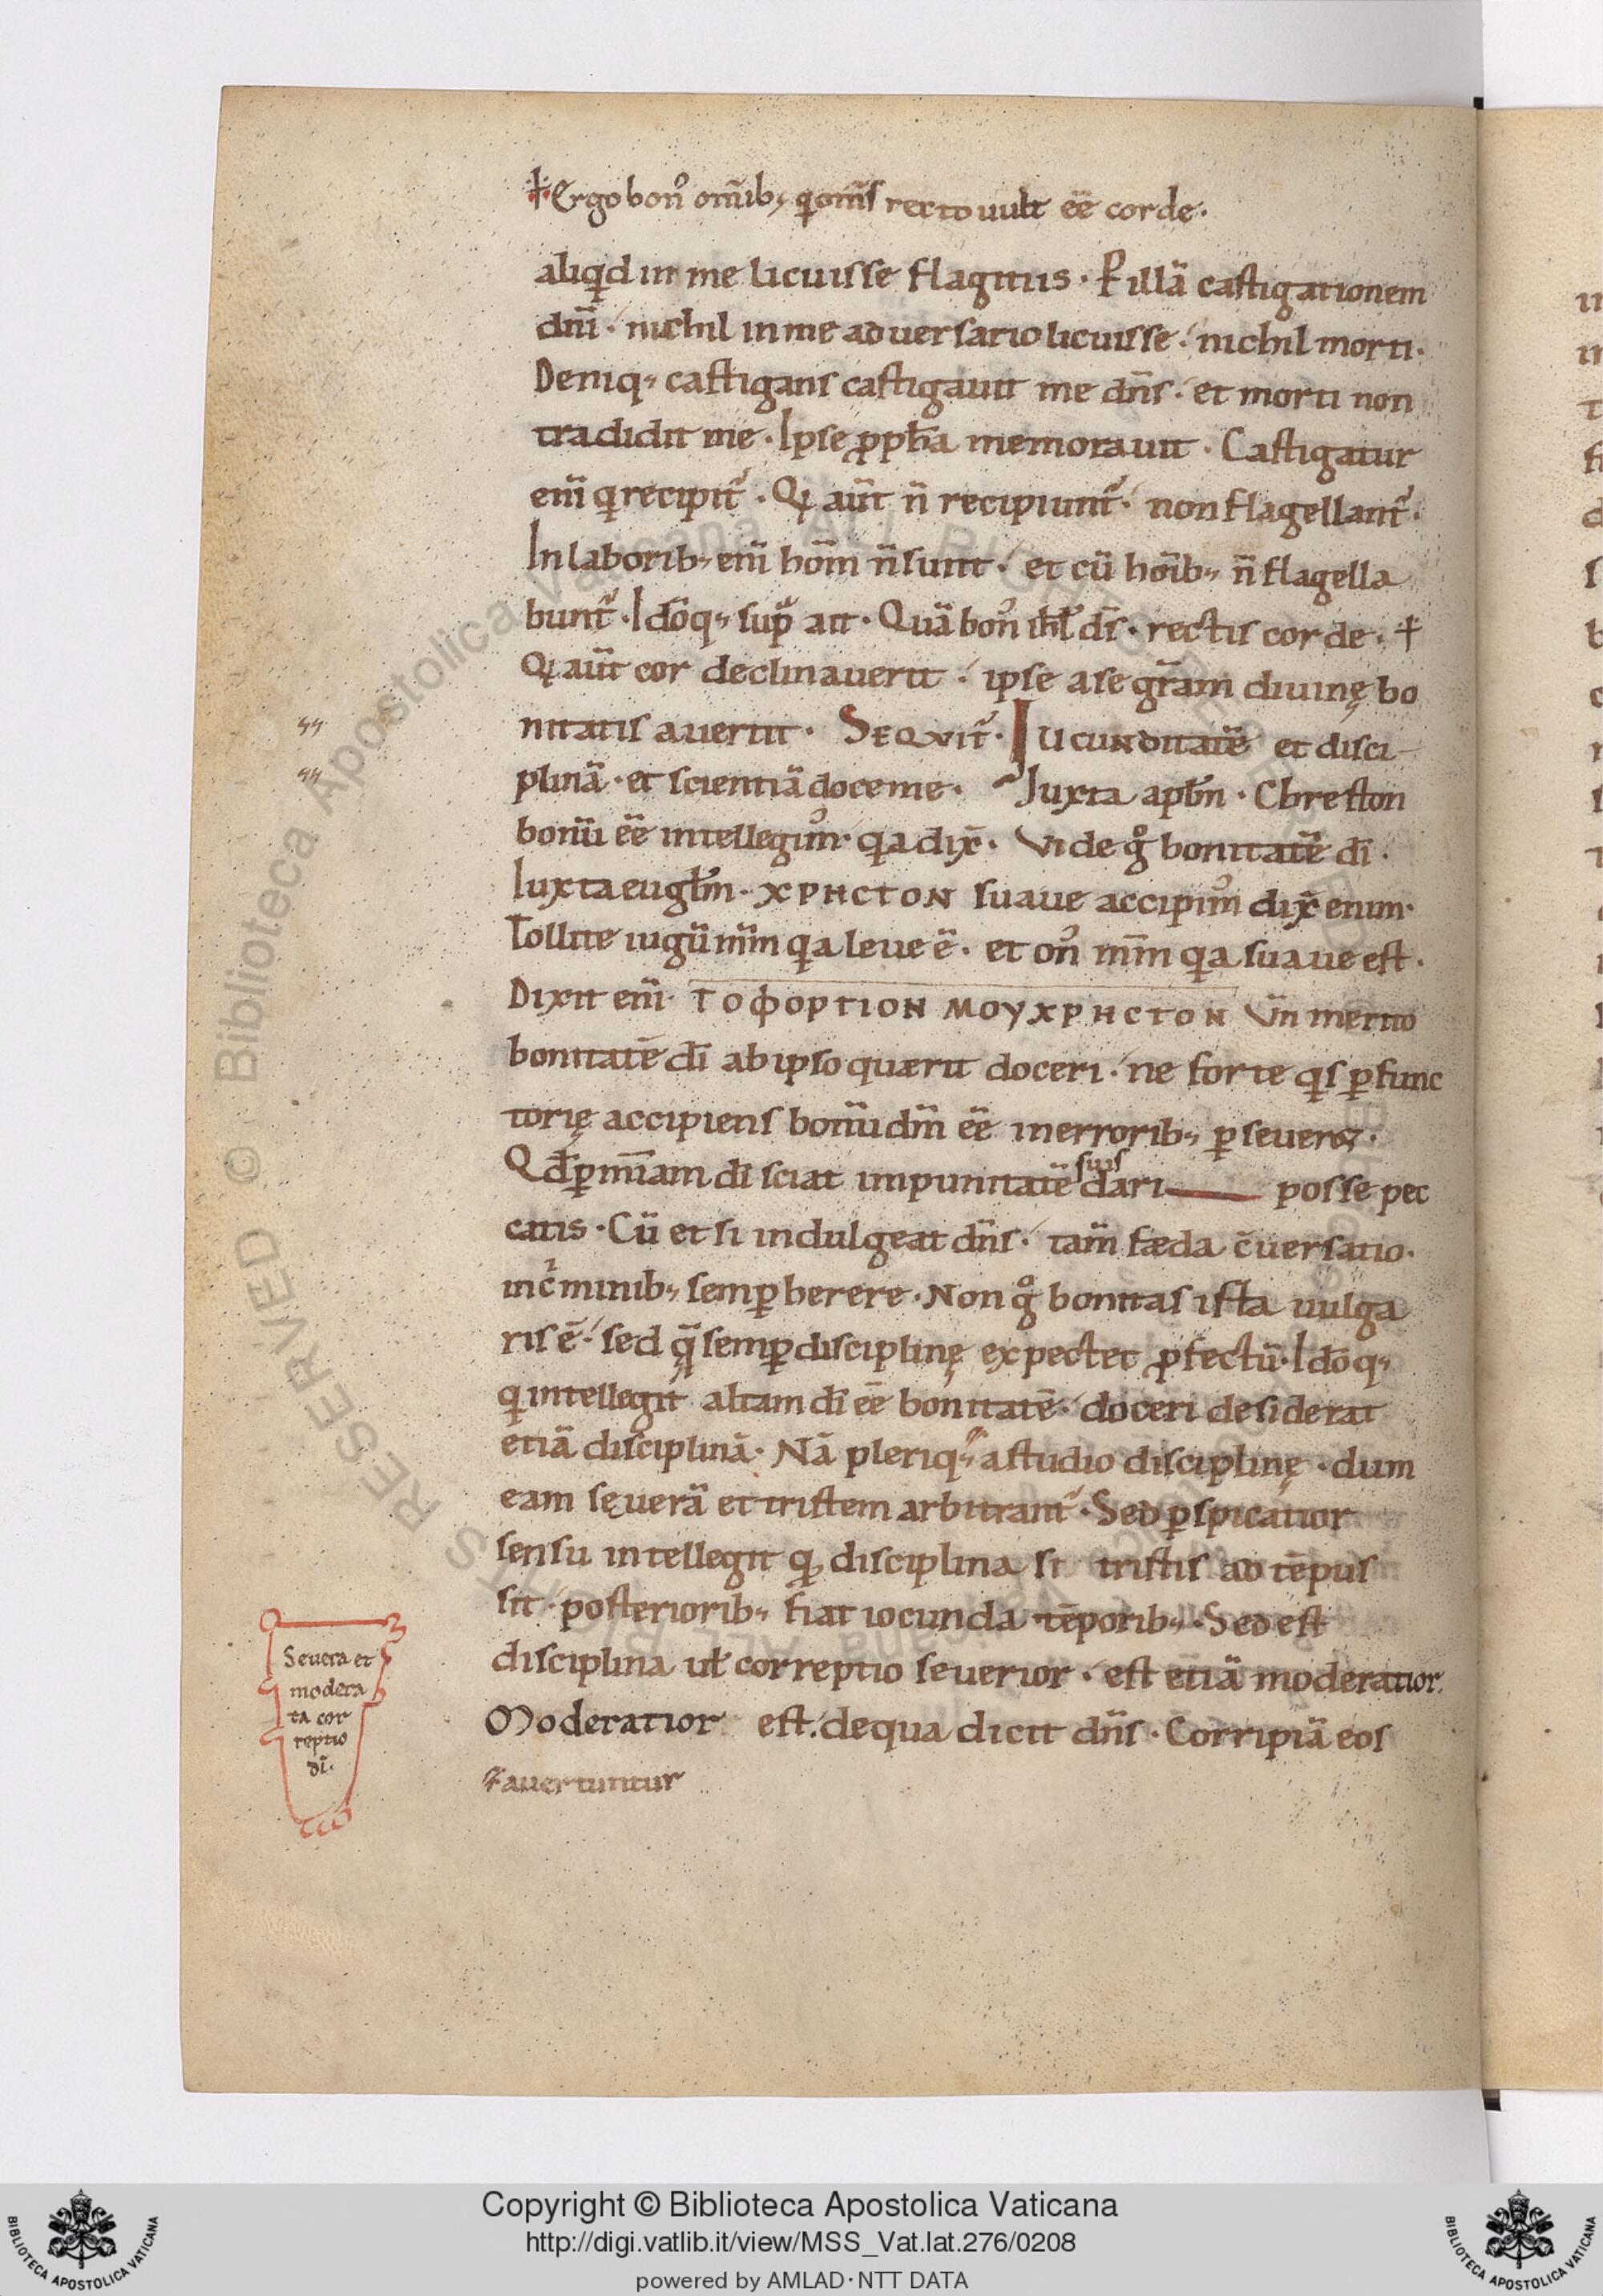 Ergo bon᷒ om̅ib; q̇ om̅s recto uult ee̅ corde·
aliq̇d in me licuisse flagitiis· P̲ illā castigationem
dn̅i· nichil in me aduersario licuisse· nichil morti·
Deniq; castigans castigauit me dn̅s· et morti non
tradidit me· Ipse ꝓph̅a memorauit· Castigatur
eni̅ q̇ recipit᷑· Qi aut̅ n̅ recipiunt᷑· non flagellant᷑·
In laborib; eni̅ hom̅ n̅ sunt· et cū hoı̅b; n̅ flagella
bunt᷑· Idōq; sup᷑ ait· Quā bon᷒ isr̅l ds̅· rectis corde· †
Qi aut̅ cor declinauerit· ipse a se gr̅am diuinę bo
nitatis auertit· SEQVIT᷑· Iucunditatē et disci
plinā· et scientiā doce me· Juxta apl̅m· Chreston
bonū ee̅ intellegim᷒· q̇a dix̅· Vide gͦ bonitatē di̅·
Iuxta eugl̅m· ΧΡΗCΤΟΝ suaue accipim᷒ dix̅ enim·
Tollite iugū mm̅ q̇a leue ē· et on᷒ mm̅ q̇a suaue est·
Dixit eni̅· ΤΟΦΟΡΤΙΟΝ ΜΟΥΧΡΗCΤΟΝ Vn̅ merito
bonitatē di̅ ab ipso quærit doceri· ne forte q̇s ꝑfunc
torię accipiens bonū dm̅ ee̅ in errorib; ꝑseueret·
Qd̅ ꝑ mi̅am di̅ sciat impunitatē suis dari posse pec
catis· Cū et si indulgeat dn̅s· tam̅ fæda c̅uersatio·
in cͥminib; semꝑ herere· Non gͦ bonitas ista uulga
ris ē· sed q̅ semꝑ disciplinę expectet ꝓfectū· Idōq;
q̇ intellegit altam di̅ ee̅ bonitatē· doceri desiderat
etiā disciplinā· Nā pleriq; a studio disciplinę· dum
eam sęuerā et tristem arbitrant᷑· Sed ꝑspicatior
sensu intellegit q̇ disciplina si tristis ad tēpus
sit· posteriorib; fiat iocunda tēporib;· Sed est
disciplina ul̅ correptio seuerior· est etiā moderatior·
Moderatior est· de qua dicit dn̅s· Corripiā eos
auertuntur
Seuera et
modera
ta cor
reptio
di̅·
Copyright © Biblioteca Apostolica Vaticana
http://digi.vatlib.it/view/MSS_Vat.lat.276/0208
powered by AMLAD·NTT DATA
BIBLIOTECA APOSTOLICA VATICANA
BIBLIOTECA APOSTOLICA VATICANA